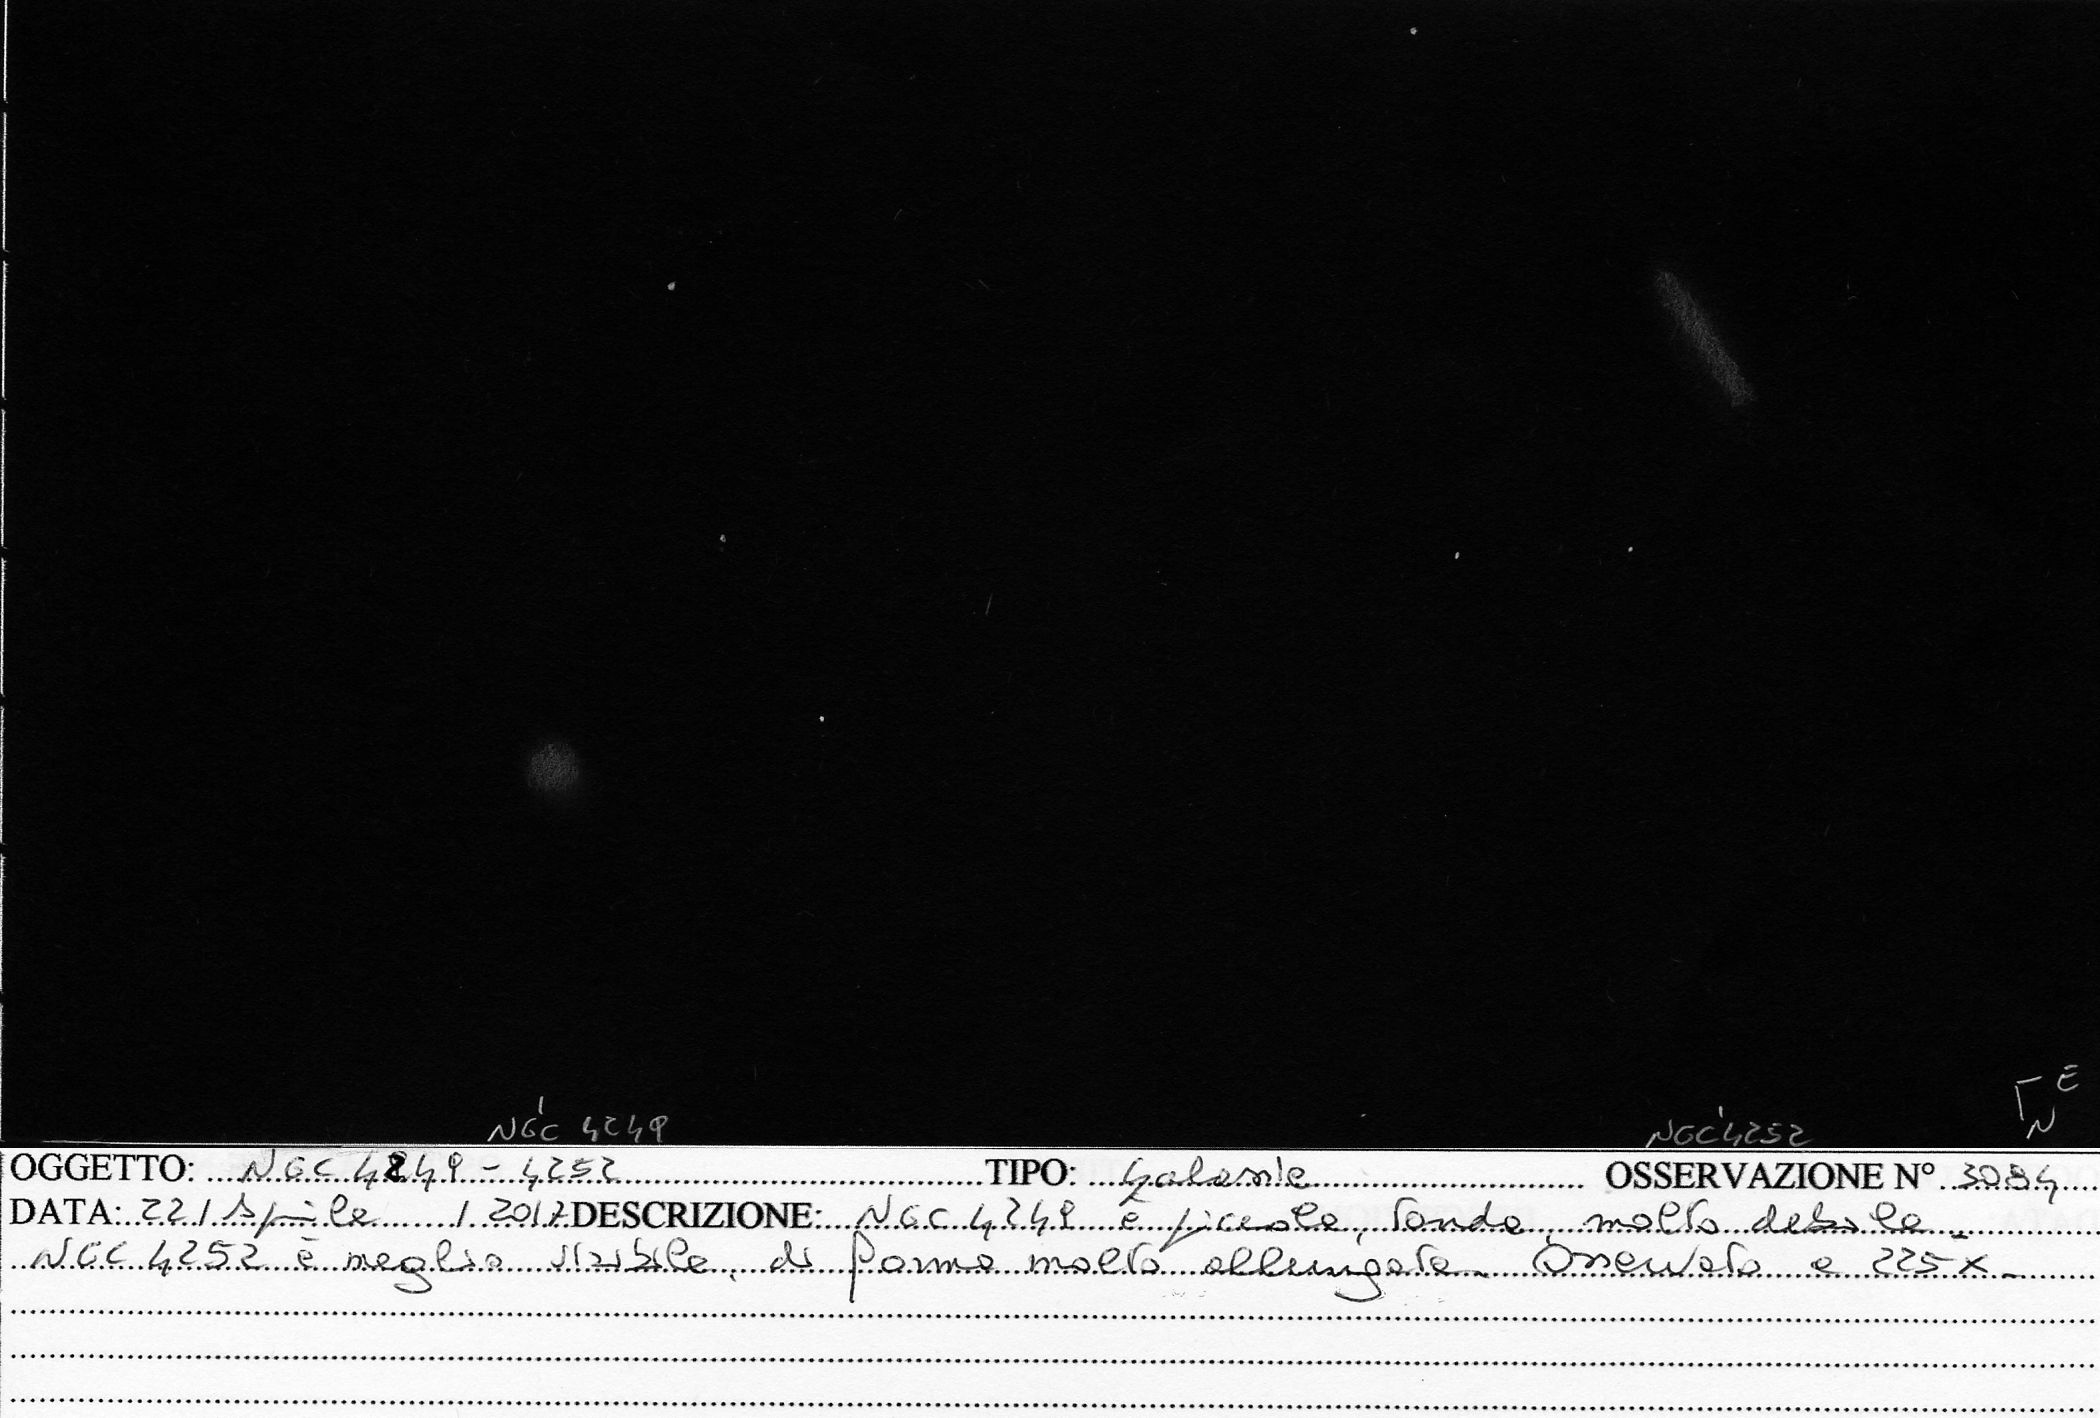 NGC 4249
NGC 4252
E
N
OGGETTO: NGC 4249 - 4252 TIPO: Galassie OSSERVAZIONE N° 3084
DATA: 22 / Aprile / 2017 DESCRIZIONE: NGC 4249 è piccola, tonda, molto debole.
NGC 4252 è meglio visibile, di forma molto allungata. Osservata a 225x.